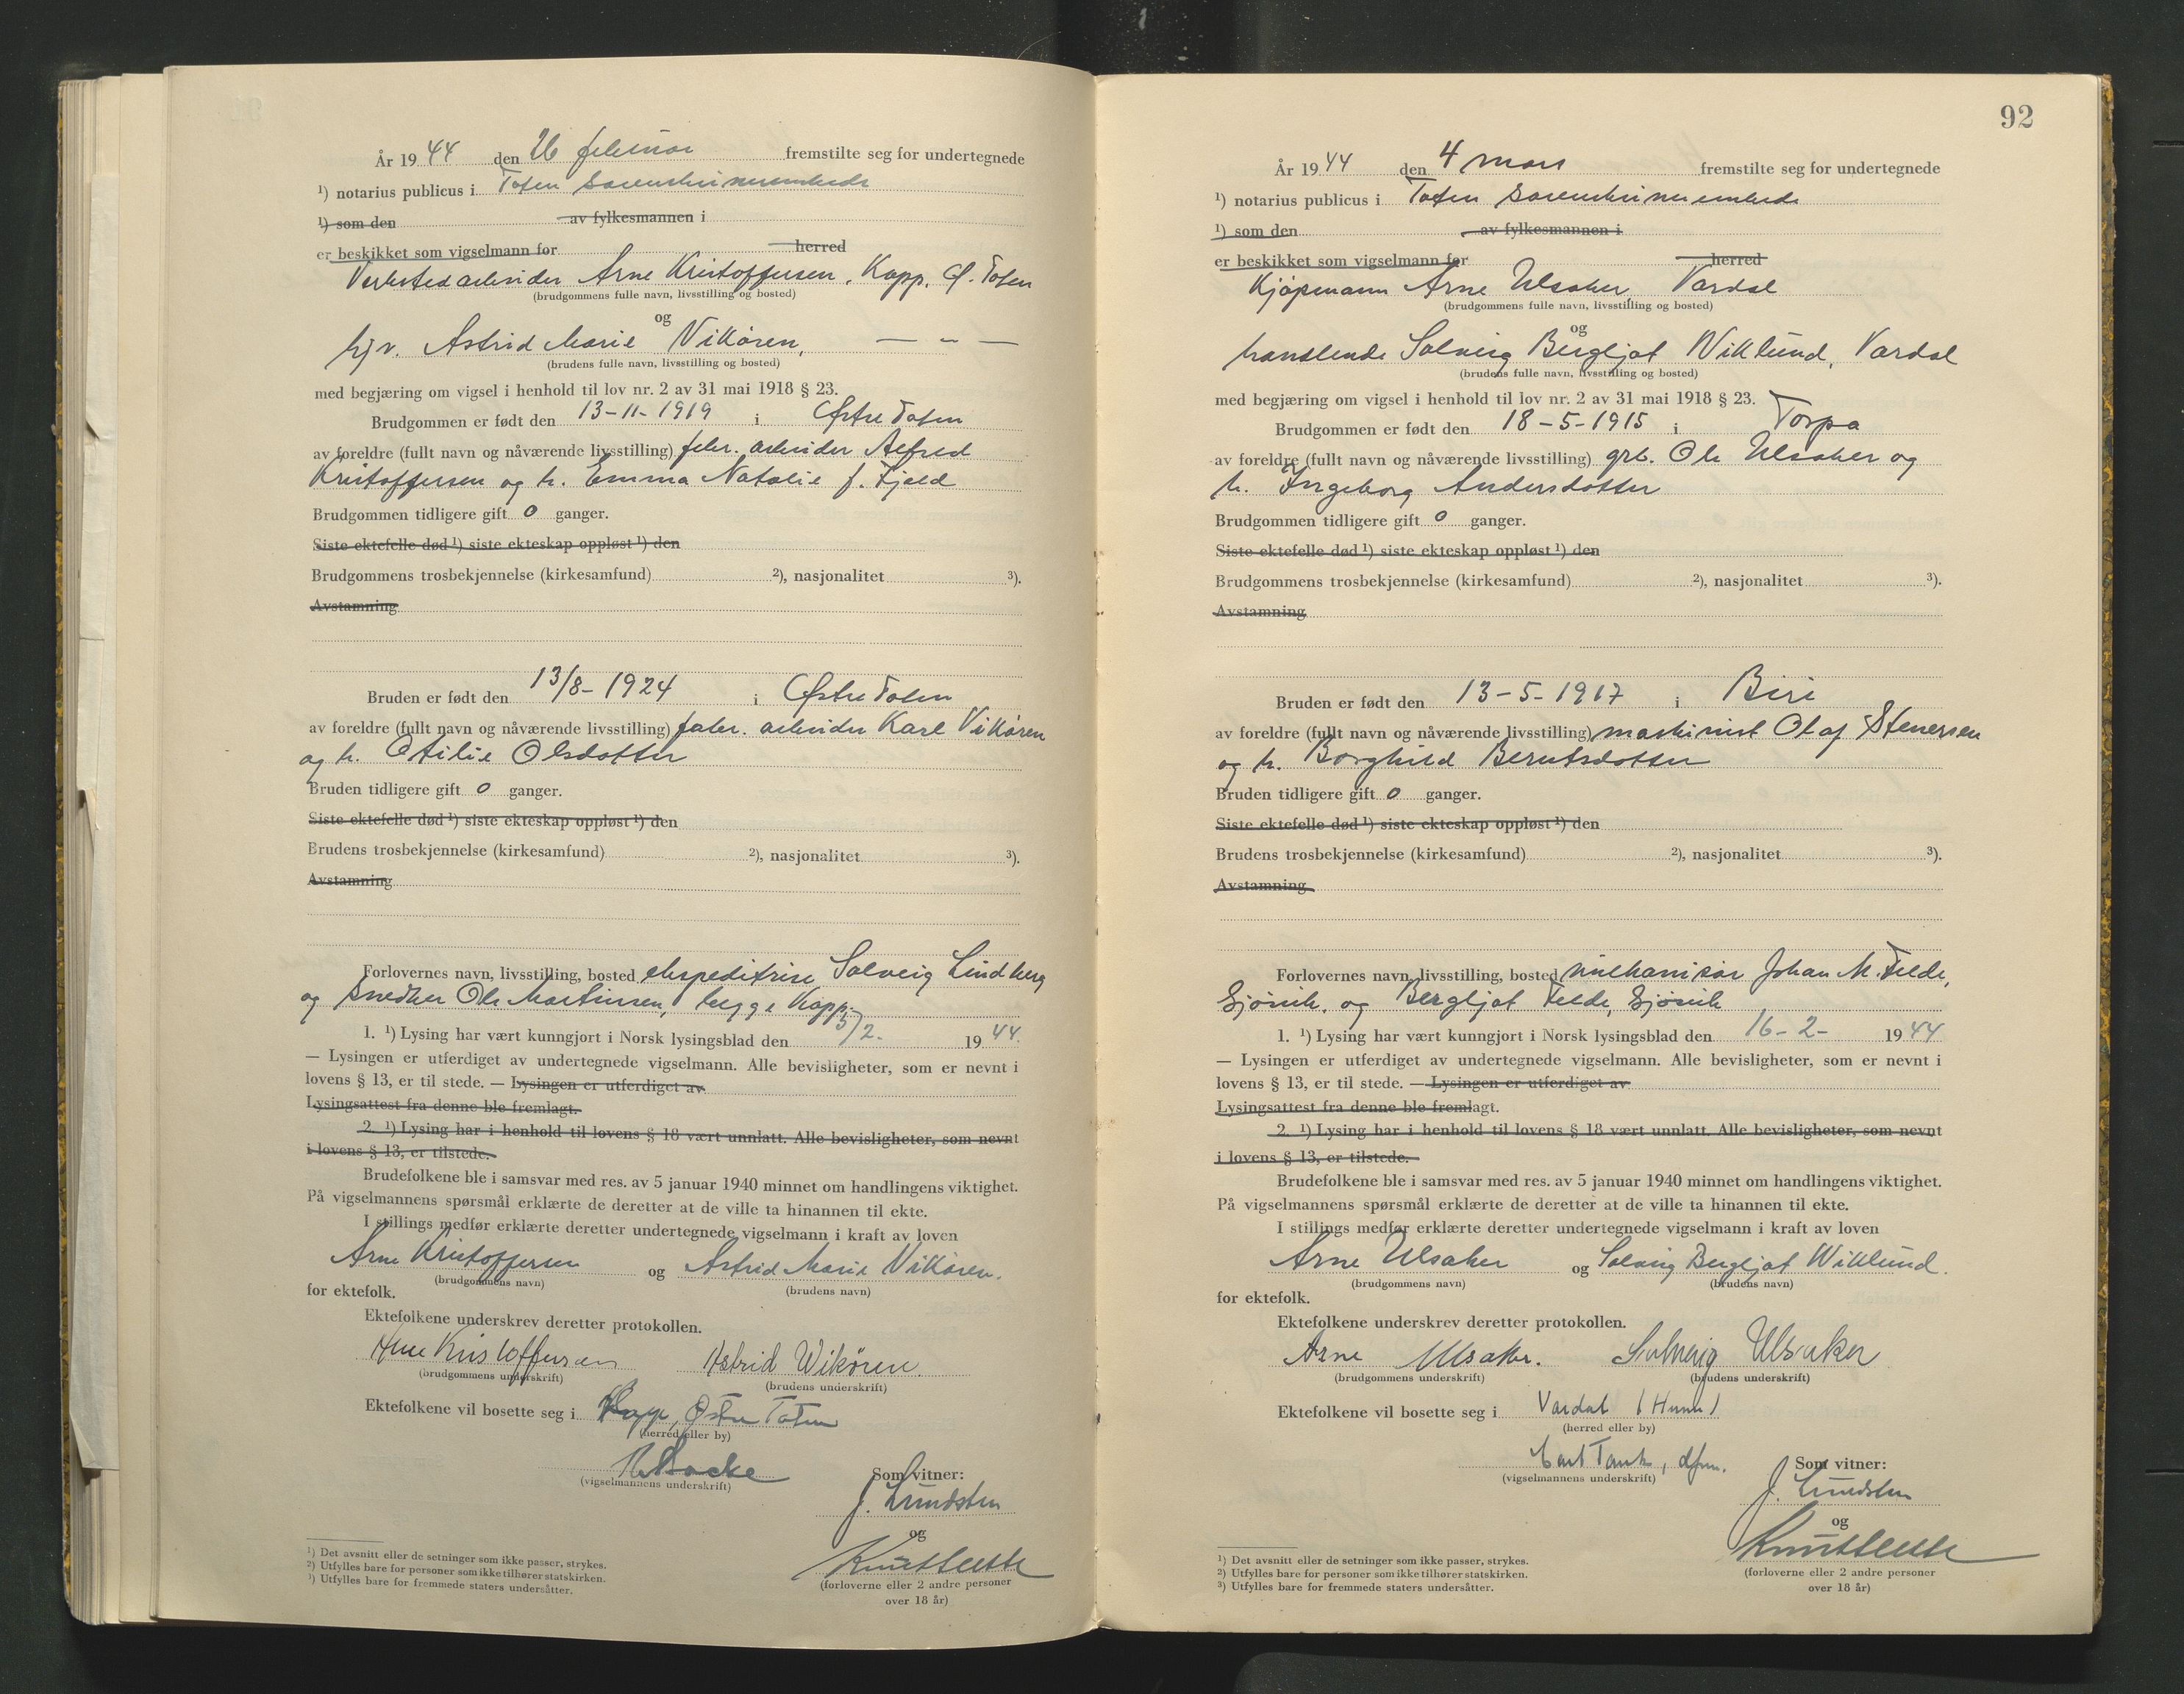 År 1944 den 26 februar fremstilte seg for undertegnede
¹) notarius publicus i Toten sorenskriverembede
¹) som den av fylkesmannen i
er beskikket som vigselmann for herred
Verkstedarbeider Arne Kristoffersen, Kapp, Ø. Toten
(brudgommens fulle navn, livsstilling og bosted)
og
hjv. Astrid Marie Vikøren, — „ —
(brudens fulle navn, livsstilling og bosted)
med begjæring om vigsel i henhold til lov nr. 2 av 31 mai 1918 § 23.
Brudgommen er født den 13-11-1919 i Østre Toten
av foreldre (fullt navn og nåværende livsstilling) fabr. arbeider Alfred
Kristoffersen og h. Emma Natalie f. Fjeld
Brudgommen tidligere gift 0 ganger.
Siste ektefelle død ¹) siste ekteskap oppløst ¹) den
Brudgommens trosbekjennelse (kirkesamfund) ²), nasjonalitet ³).
Avstamning
Bruden er født den 13/8-1924 i Østre Toten
av foreldre (fullt navn og nåværende livsstilling) fabr. arbeider Karl Vikøren
og h. Otilie Olsdotter
Bruden tidligere gift 0 ganger.
Siste ektefelle død ¹) siste ekteskap oppløst ¹) den
Brudens trosbekjennelse (kirkesamfund) ²), nasjonalitet ³).
Avstamning
Forlovernes navn, livsstilling, bosted ekspeditrise Solveig Lindberg
og snedker Ole Martinsen, begge Kapp.
1. ¹) Lysing har vært kunngjort i Norsk lysingsblad den 3/2. 1944.
— Lysingen er utferdiget av undertegnede vigselmann. Alle bevisligheter, som er nevnt i
lovens § 13, er til stede. — Lysingen er utferdiget av
Lysingsattest fra denne ble fremlagt.
2. ¹) Lysing har i henhold til lovens § 18 vært unnlatt. Alle bevisligheter, som nevnt
i lovens § 13, er tilstede.
Brudefolkene ble i samsvar med res. av 5 januar 1940 minnet om handlingens viktighet.
På vigselmannens spørsmål erklærte de deretter at de ville ta hinannen til ekte.
I stillings medfør erklærte deretter undertegnede vigselmann i kraft av loven
Arne Kristoffersen og Astrid Marie Vikøren.
(brudgommens navn) (brudens navn)
for ektefolk.
Ektefolkene underskrev deretter protokollen.
Arne Kristoffersen Astrid Wikøren.
(brudgommens underskrift) (brudens underskrift)
Ektefolkene vil bosette seg i Kapp, Østre Toten
(herred eller by)
(vigselmannens underskrift) Som vitner:
J. Lundsten
og
(forloverne eller 2 andre personer
over 18 år)
¹) Det avsnitt eller de setninger som ikke passer, strykes.
²) Utfylles bare for personer som ikke tilhører statskirken.
³) Utfylles bare for fremmede staters undersåtter.
92
År 1944 den 4 mars fremstilte seg for undertegnede
¹) notarius publicus i Toten sorenskriverembede
¹) som den av fylkesmannen i
er beskikket som vigselmann for herred
Kjøpmann Arne Ulsaker, Vardal
(brudgommens fulle navn, livsstilling og bosted)
og
Solveig Bergljot Wiklund, Vardal
(brudens fulle navn, livsstilling og bosted)
med begjæring om vigsel i henhold til lov nr. 2 av 31 mai 1918 § 23.
Brudgommen er født den 18-5-1915 i Torpa
av foreldre (fullt navn og nåværende livsstilling) grb. Ole Ulsaker og
h. Ingeborg Andersdotter
Brudgommen tidligere gift 0 ganger.
Siste ektefelle død ¹) siste ekteskap oppløst ¹) den
Brudgommens trosbekjennelse (kirkesamfund) ²), nasjonalitet ³).
Avstamning
Bruden er født den 13-5-1917 i Biri
av foreldre (fullt navn og nåværende livsstilling) maskinist Olaf Stenersen
og h. Borghild Berntsdotter
Bruden tidligere gift 0 ganger.
Siste ektefelle død ¹) siste ekteskap oppløst ¹) den
Brudens trosbekjennelse (kirkesamfund) ²), nasjonalitet ³).
Avstamning
Forlovernes navn, livsstilling, bosted Johan M. Felde,
Gjøvik, og Bergljot Felde, Gjøvik
1. ¹) Lysing har vært kunngjort i Norsk lysingsblad den 16-2- 1944
— Lysingen er utferdiget av undertegnede vigselmann. Alle bevisligheter, som er nevnt i
lovens § 13, er til stede. — Lysingen er utferdiget av
Lysingsattest fra denne ble fremlagt.
2. ¹) Lysing har i henhold til lovens § 18 vært unnlatt. Alle bevisligheter, som nevnt
i lovens § 13, er tilstede.
Brudefolkene ble i samsvar med res. av 5 januar 1940 minnet om handlingens viktighet.
På vigselmannens spørsmål erklærte de deretter at de ville ta hinannen til ekte.
I stillings medfør erklærte deretter undertegnede vigselmann i kraft av loven
Arne Ulsaker og Solveig Bergljot Wiklund.
(brudgommens navn) (brudens navn)
for ektefolk.
Ektefolkene underskrev deretter protokollen.
Arne Ulsaker. Solveig Ulsaker
(brudgommens underskrift) (brudens underskrift)
Ektefolkene vil bosette seg i Vardal (Hunn)
(herred eller by)
(vigselmannens underskrift) Som vitner:
J. Lundsten
og
(forloverne eller 2 andre personer
over 18 år)
¹) Det avsnitt eller de setninger som ikke passer, strykes.
²) Utfylles bare for personer som ikke tilhører statskirken.
³) Utfylles bare for fremmede staters undersåtter.